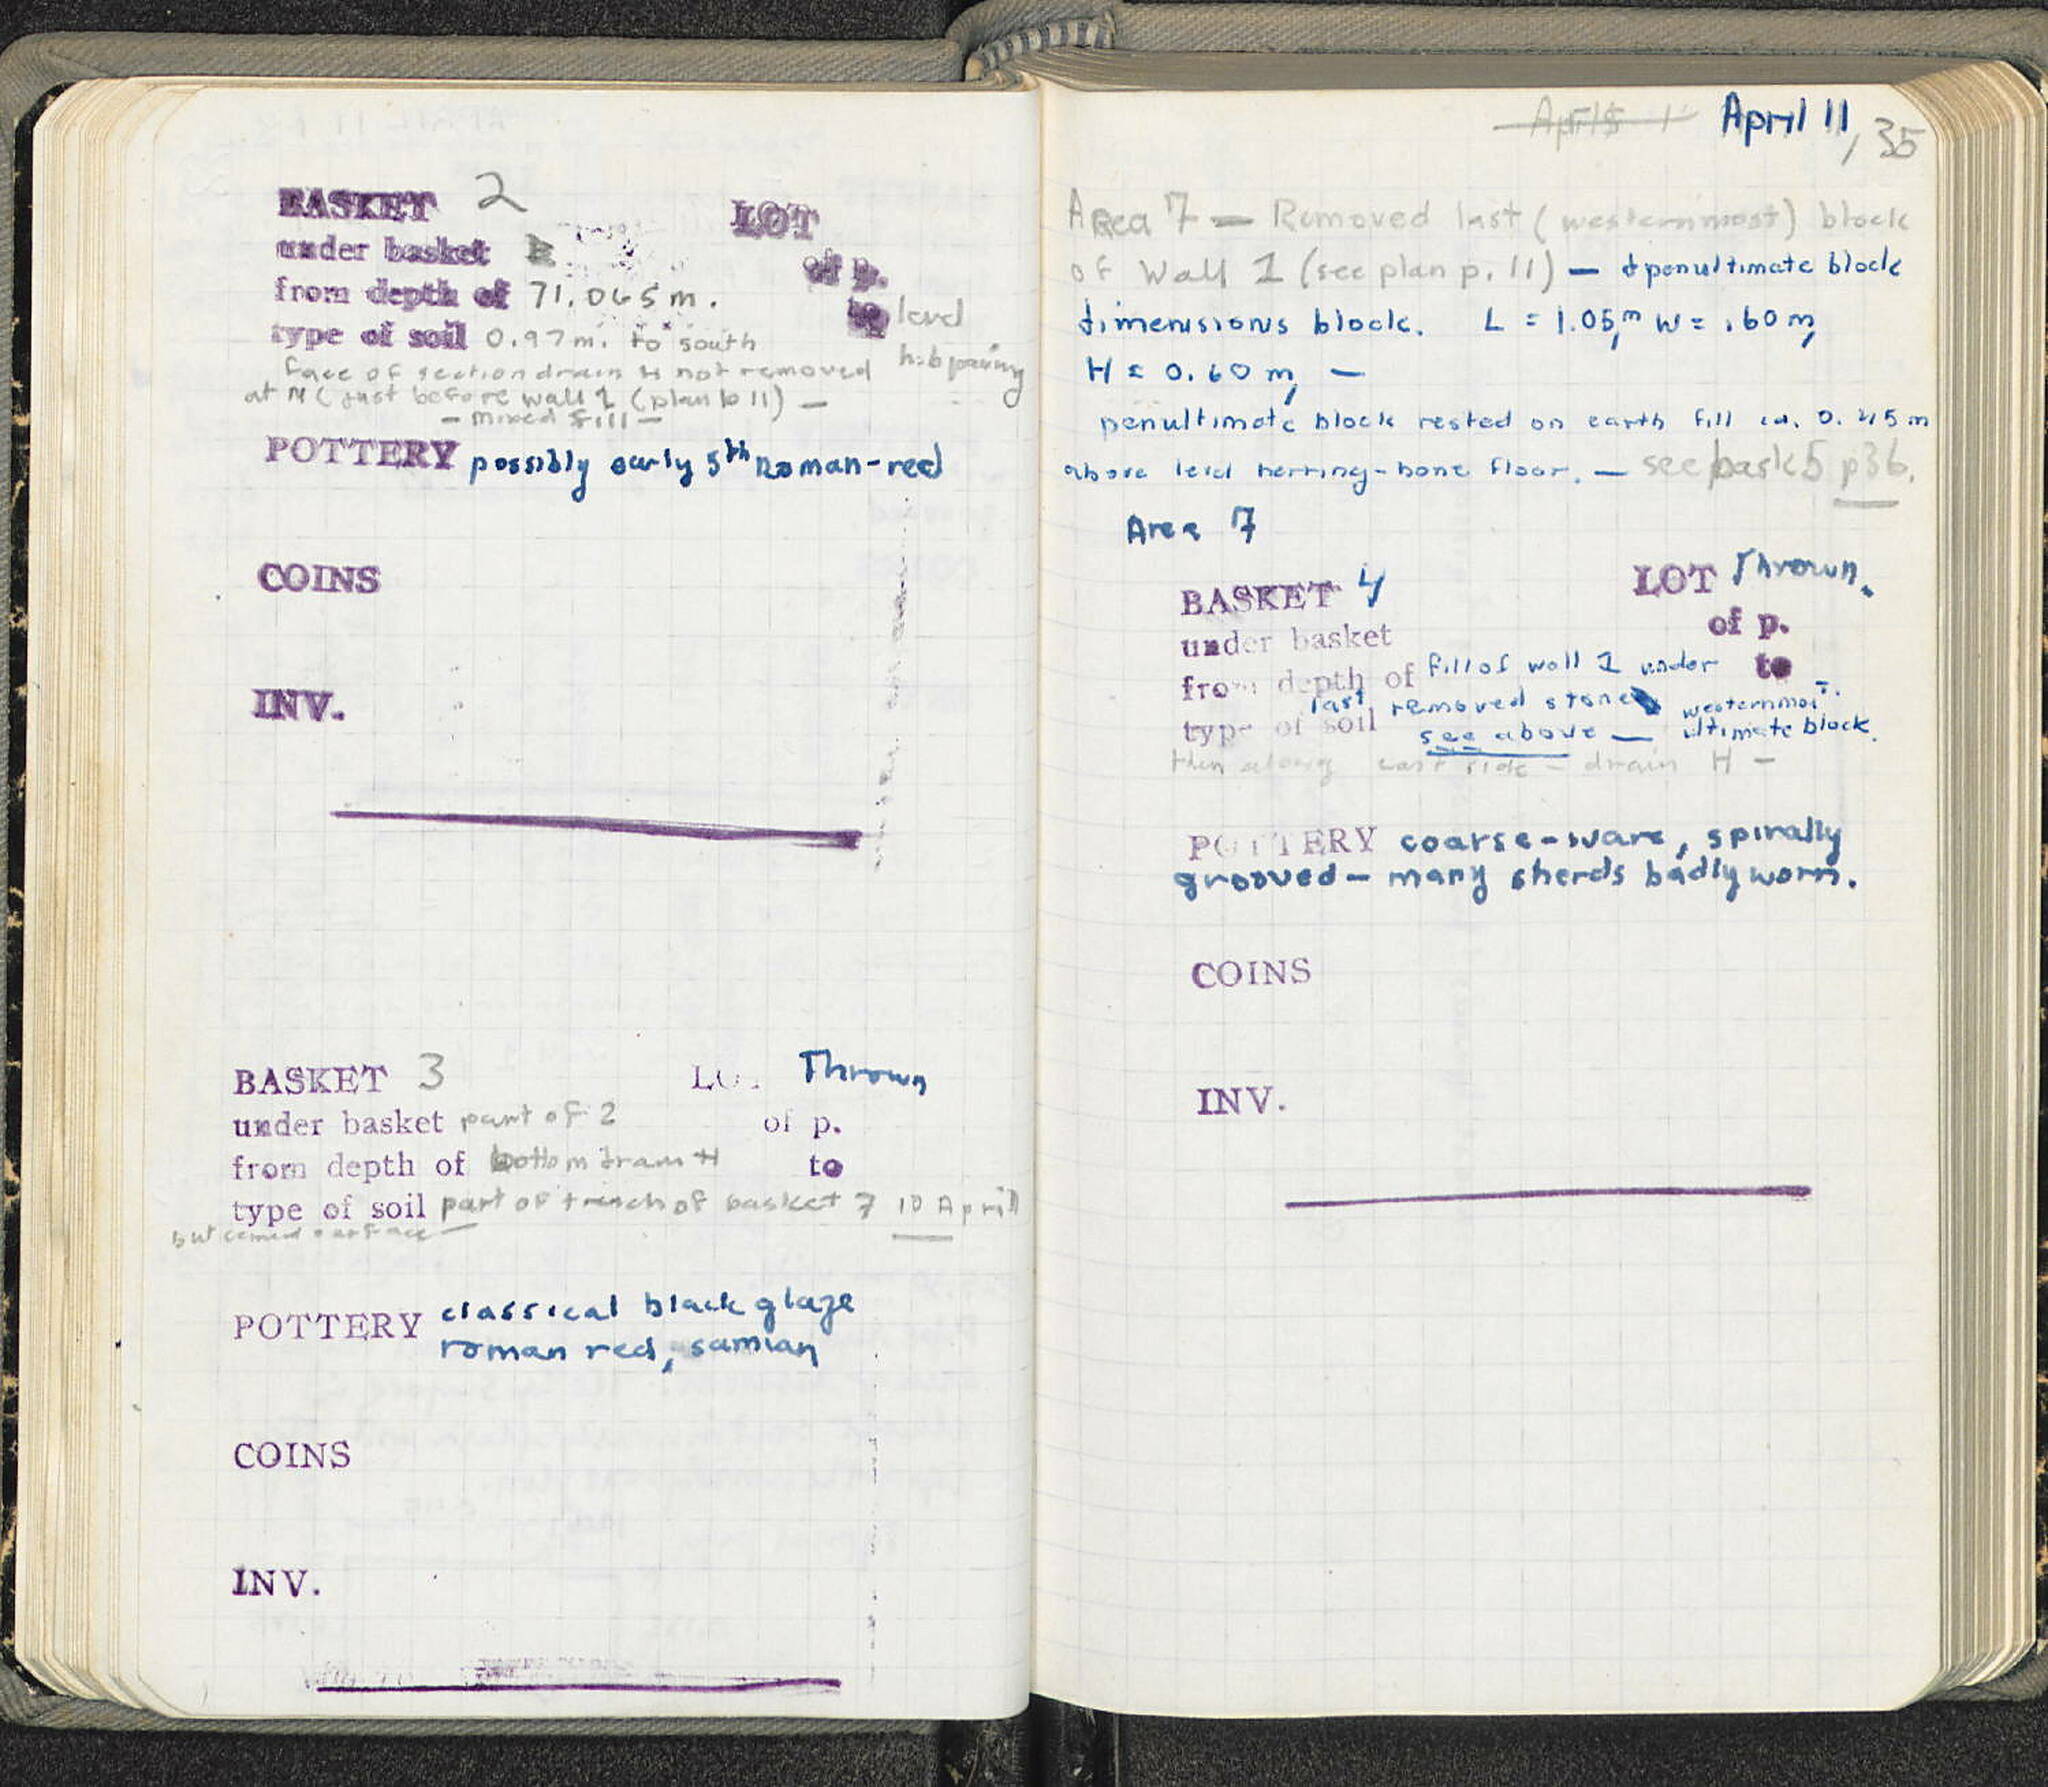 BASKET 2 LOT
under basket of p.
from depth of 71.065 m. to level
type of soil 0.97m. to south h-b paving
face of section drain H not removed
at N (just before wall 1 (plan p 11) —
— mixed fill —
POTTERY possibly early 5th Roman-red
COINS
INV.
BASKET 3 LOT Thrown
under basket part of 2 of p.
from depth of bottom drain H to
type of soil part of trench of basket 7 10 April
but surface —
POTTERY classical black glaze
roman red, samian
COINS
INV.
April 11, 35
Area 7 — Removed last (westernmost) block
of Wall 1 (see plan p. 11) — + penultimate block
dimensions block. L = 1.05m, W = .60 m,
H = 0.60 m, —
penultimate block rested on earth fill ca. 0.45 m
above level herring-bone floor. — see bask 5 p36.
Area 7
BASKET 4 LOT Thrown.
under basket of p.
from depth of fill of wall 1 under to
last removed stone westernmost.
type of soil see above — ultimate block.
then along east side — drain H —
POTTERY coarse-ware, spirally
grooved — many sherds badly worn.
COINS
INV.